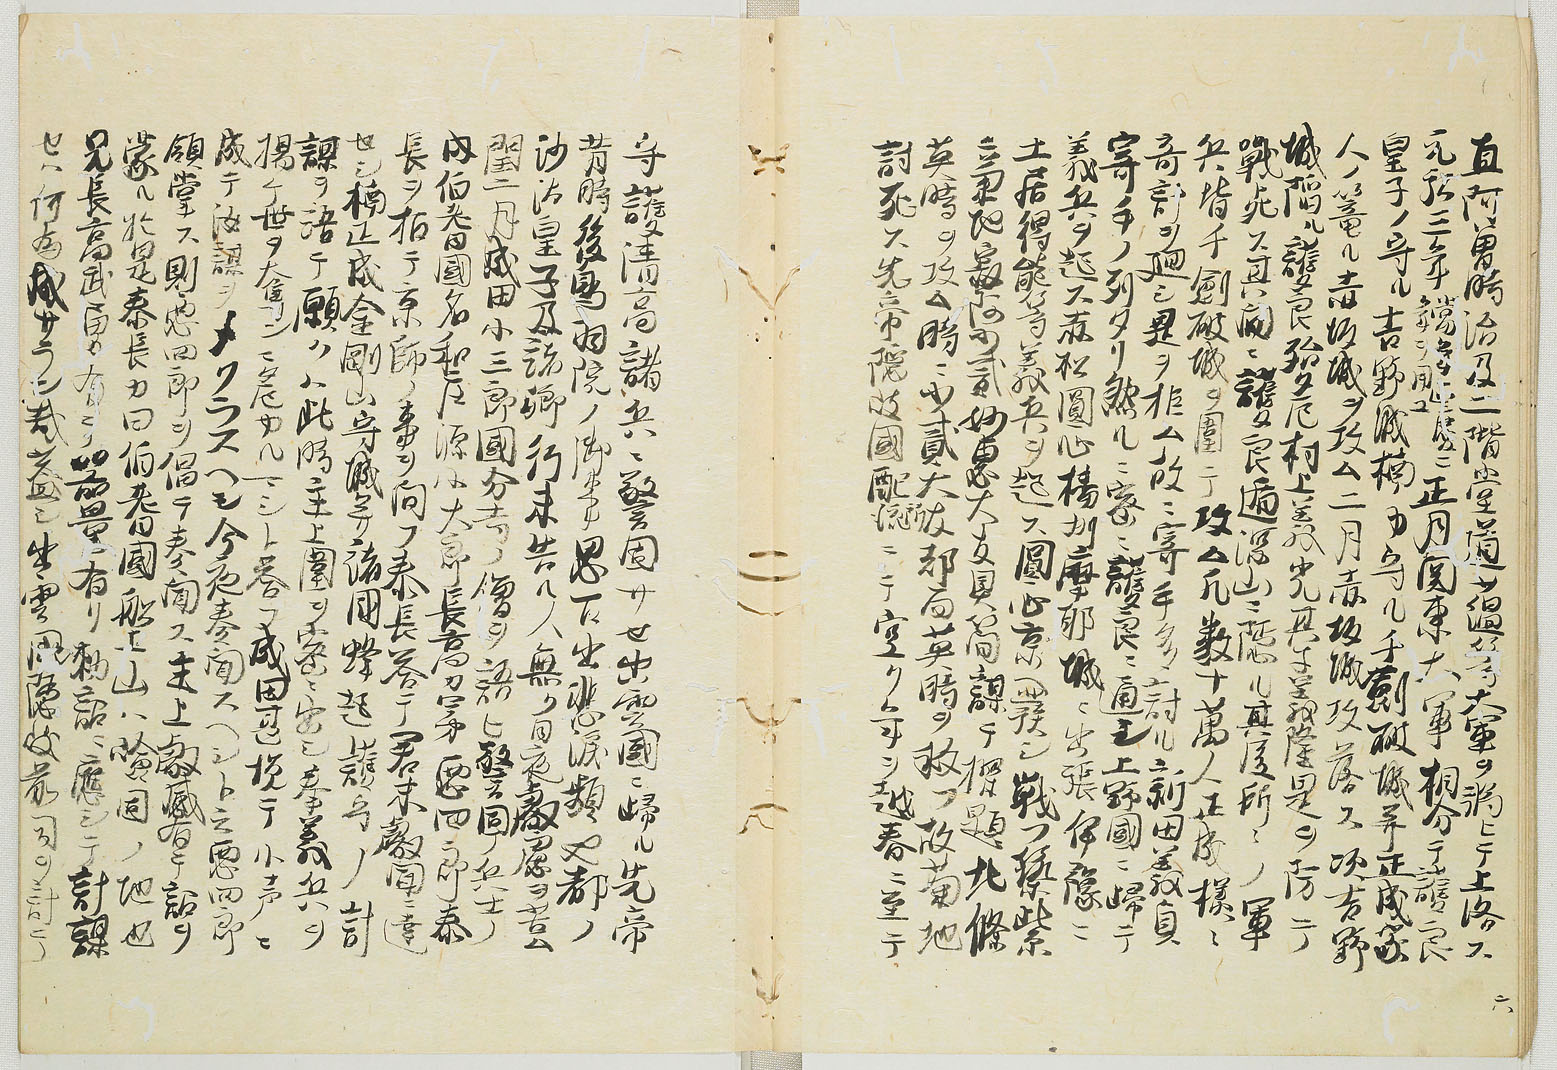 直阿曽時治及二階堂道薀等大軍ヲ満ヒテ上洛ス
元弘三年正月関東大軍相分テ護良
皇子ノ守ル吉野城楠カ守ル千劔破城并正成家
人ノ篭ル赤坂城ヲ攻ム二月赤坂城攻落ス次吉野
城陥ル護良殆タ危村上義光其子義隆是ヲ防テ
戦死ス其間ニ護良遁深山ニ隠ル其後所ニノ軍
兵皆千劔破城ヲ圍テ攻ム凡数十萬人正成様ニ
奇計ヲ廻シ是ヲ拒ム故ニ寄手多討ル新田義貞
寄手ノ列タリ然ルニ密ニ護良ニ通シ上野國ニ歸テ
義兵ヲ起ス赤松圓心楊州摩耶城ニ出張伊豫ニ
土居得能等義兵ヲ起ス圓心京ニ發シ戦フ築紫
ニ菊地寂阿少貳妙恵大友具簡謀テ探題北條
英時ヲ攻ム時ニ少貳大友郤而英時ヲ救フ故菊地
討死ス先帝隠岐國配流ニテ空ク年ヲ越春ニ至テ
守護清高諸兵ニ警固サセ出雲國ニ歸ル先帝
昔時後鳥羽院ノ御事思召出悲涙頻也都ノ
沙汰皇子及諸卿行末告ル人無ク日夜叡慮ヲ苦ム
閏二月成田小三郎國分寺ノ僧ヲ語ヒ警固ノ兵士ノ
内伯耆國名和庄源小太郎長高カ弟悪四郎泰
長ヲ招テ京師ノ事ヲ問フ泰長答テ君未叡聞ニ達
セシ楠正成金剛山守城并諸國蜂起護良ノ計
謀ヲ語テ願クハ此時主上圍ヲ密ニ出シ奉義兵ヲ
揚ケ世ヲ奪ンニ危カルマシト答フ成田甚悦テ小声ニ
成テ汝謀ヲメクラスヘシ今夜奏聞スヘシト云悪四郎
領掌ス則悪四郎ヲ倡テ奏聞ス主上叡感有テ詔ヲ
蒙ル於是泰長カ曰伯耆國船上山ハ險固ノ地也
兄長高武勇カ有ヲ器量有リ勅詔ニ應シテ計謀
セハ何為成サラン哉益シ出雲國隠岐前司ヲ討テ
六